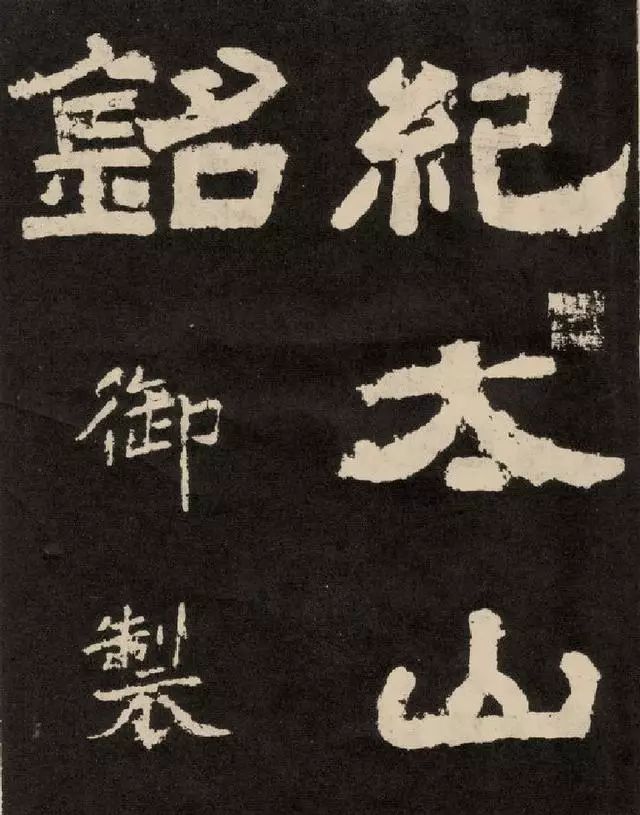 紀太山
銘御製